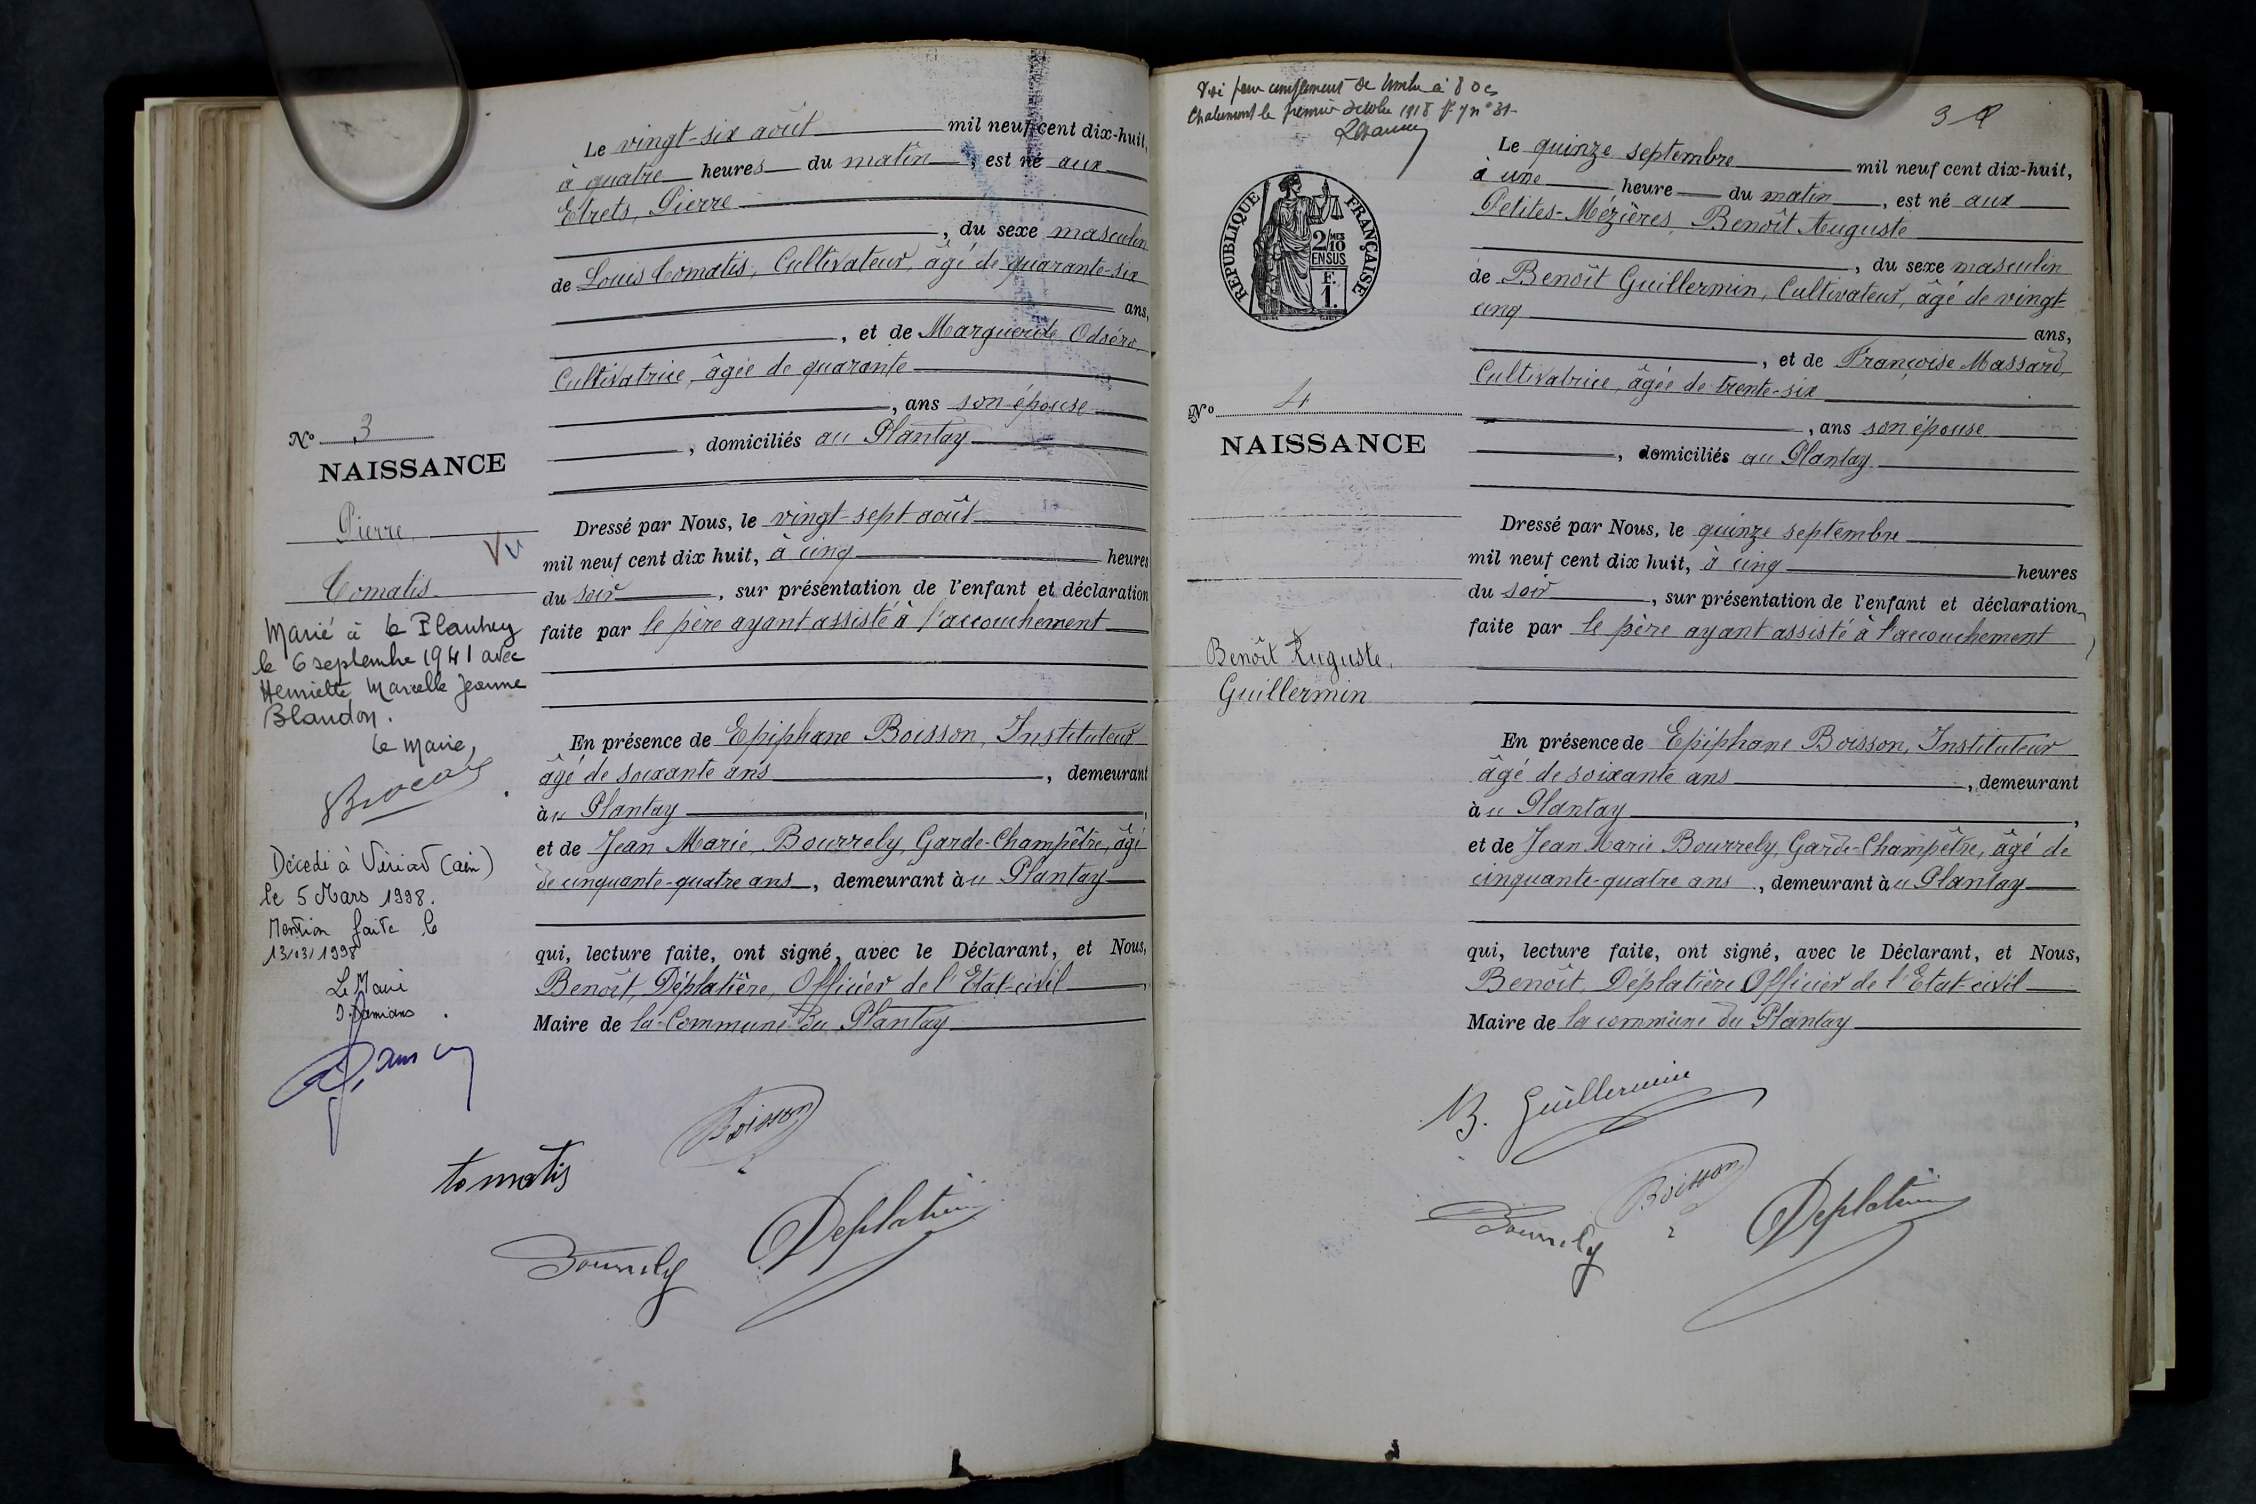 Le vingt-six août mil neuf cent dix-huit,
à quatre heures du matin, est né aux
Etrets, Pierre
, du sexe masculin
de Louis Comatis, Cultivateur, âgé de quarante-six
ans,
, et de Marguerite Odséro
Cultivatrice, âgée de quarante
, ans son épouse
, domiciliés au Plantay
Nº 3
NAISSANCE
Pierre
Vu
Comatis
Marié à Le Plantay
le 6 septembre 1941 avec
Henriette Marcelle Jeanne
Blandon.
Le Maire,
Décédé à Viriat (ain)
le 5 Mars 1998.
Mention faite le
13/03/1998
Le Maire
D. Damians
Dressé par Nous, le vingt-sept août
mil neuf cent dix huit, à cinq heures
du soir, sur présentation de l'enfant et déclaration
faite par le père ayant assisté à l'accouchement
En présence de Epiphane Boisson, Instituteur
âgé de soixante ans, demeurant
à u Plantay,
et de Jean Marie Bourrely, Garde-Champêtre, âgé
de cinquante-quatre ans, demeurant à u Plantay
qui, lecture faite, ont signé, avec le Déclarant, et Nous,
Benoît, Déplatière, Officier de l'Etat-civil,
Maire de la Commune du Plantay
Boisson
tomatis
Bourrely
Deplatière
Vu pour complément de timbre à 80 c
Chalamont le premier octobre 1918 fº 7 nº 31
3
REPUBLIQUE FRANÇAISE
2/10
MES
EN SUS
F.
1.
Le quinze septembre mil neuf cent dix-huit,
à une heure du matin, est né aux
Petites-Mézières, Benoît Auguste
, du sexe masculin
de Benoît Guillermin, Cultivateur, âgé de vingt
cinq
ans,
, et de Françoise Massard,
Cultivatrice, âgée de trente-six
, ans son épouse
, domiciliés au Plantay
Nº 4
NAISSANCE
Benoît Auguste,
Guillermin
Dressé par Nous, le quinze septembre
mil neuf cent dix huit, à cinq heures
du soir, sur présentation de l'enfant et déclaration
faite par le père ayant assisté à l'accouchement
En présence de Epiphane Boisson, Instituteur
âgé de soixante ans, demeurant
à u Plantay,
et de Jean Marie Bourrely, Garde-Champêtre, âgé de
cinquante-quatre ans, demeurant à u Plantay
qui, lecture faite, ont signé, avec le Déclarant, et Nous,
Benoît, Déplatière Officier de l'Etat-civil
Maire de la commune du Plantay
B. Guillermin
Boisson
Bourrely
Deplatière